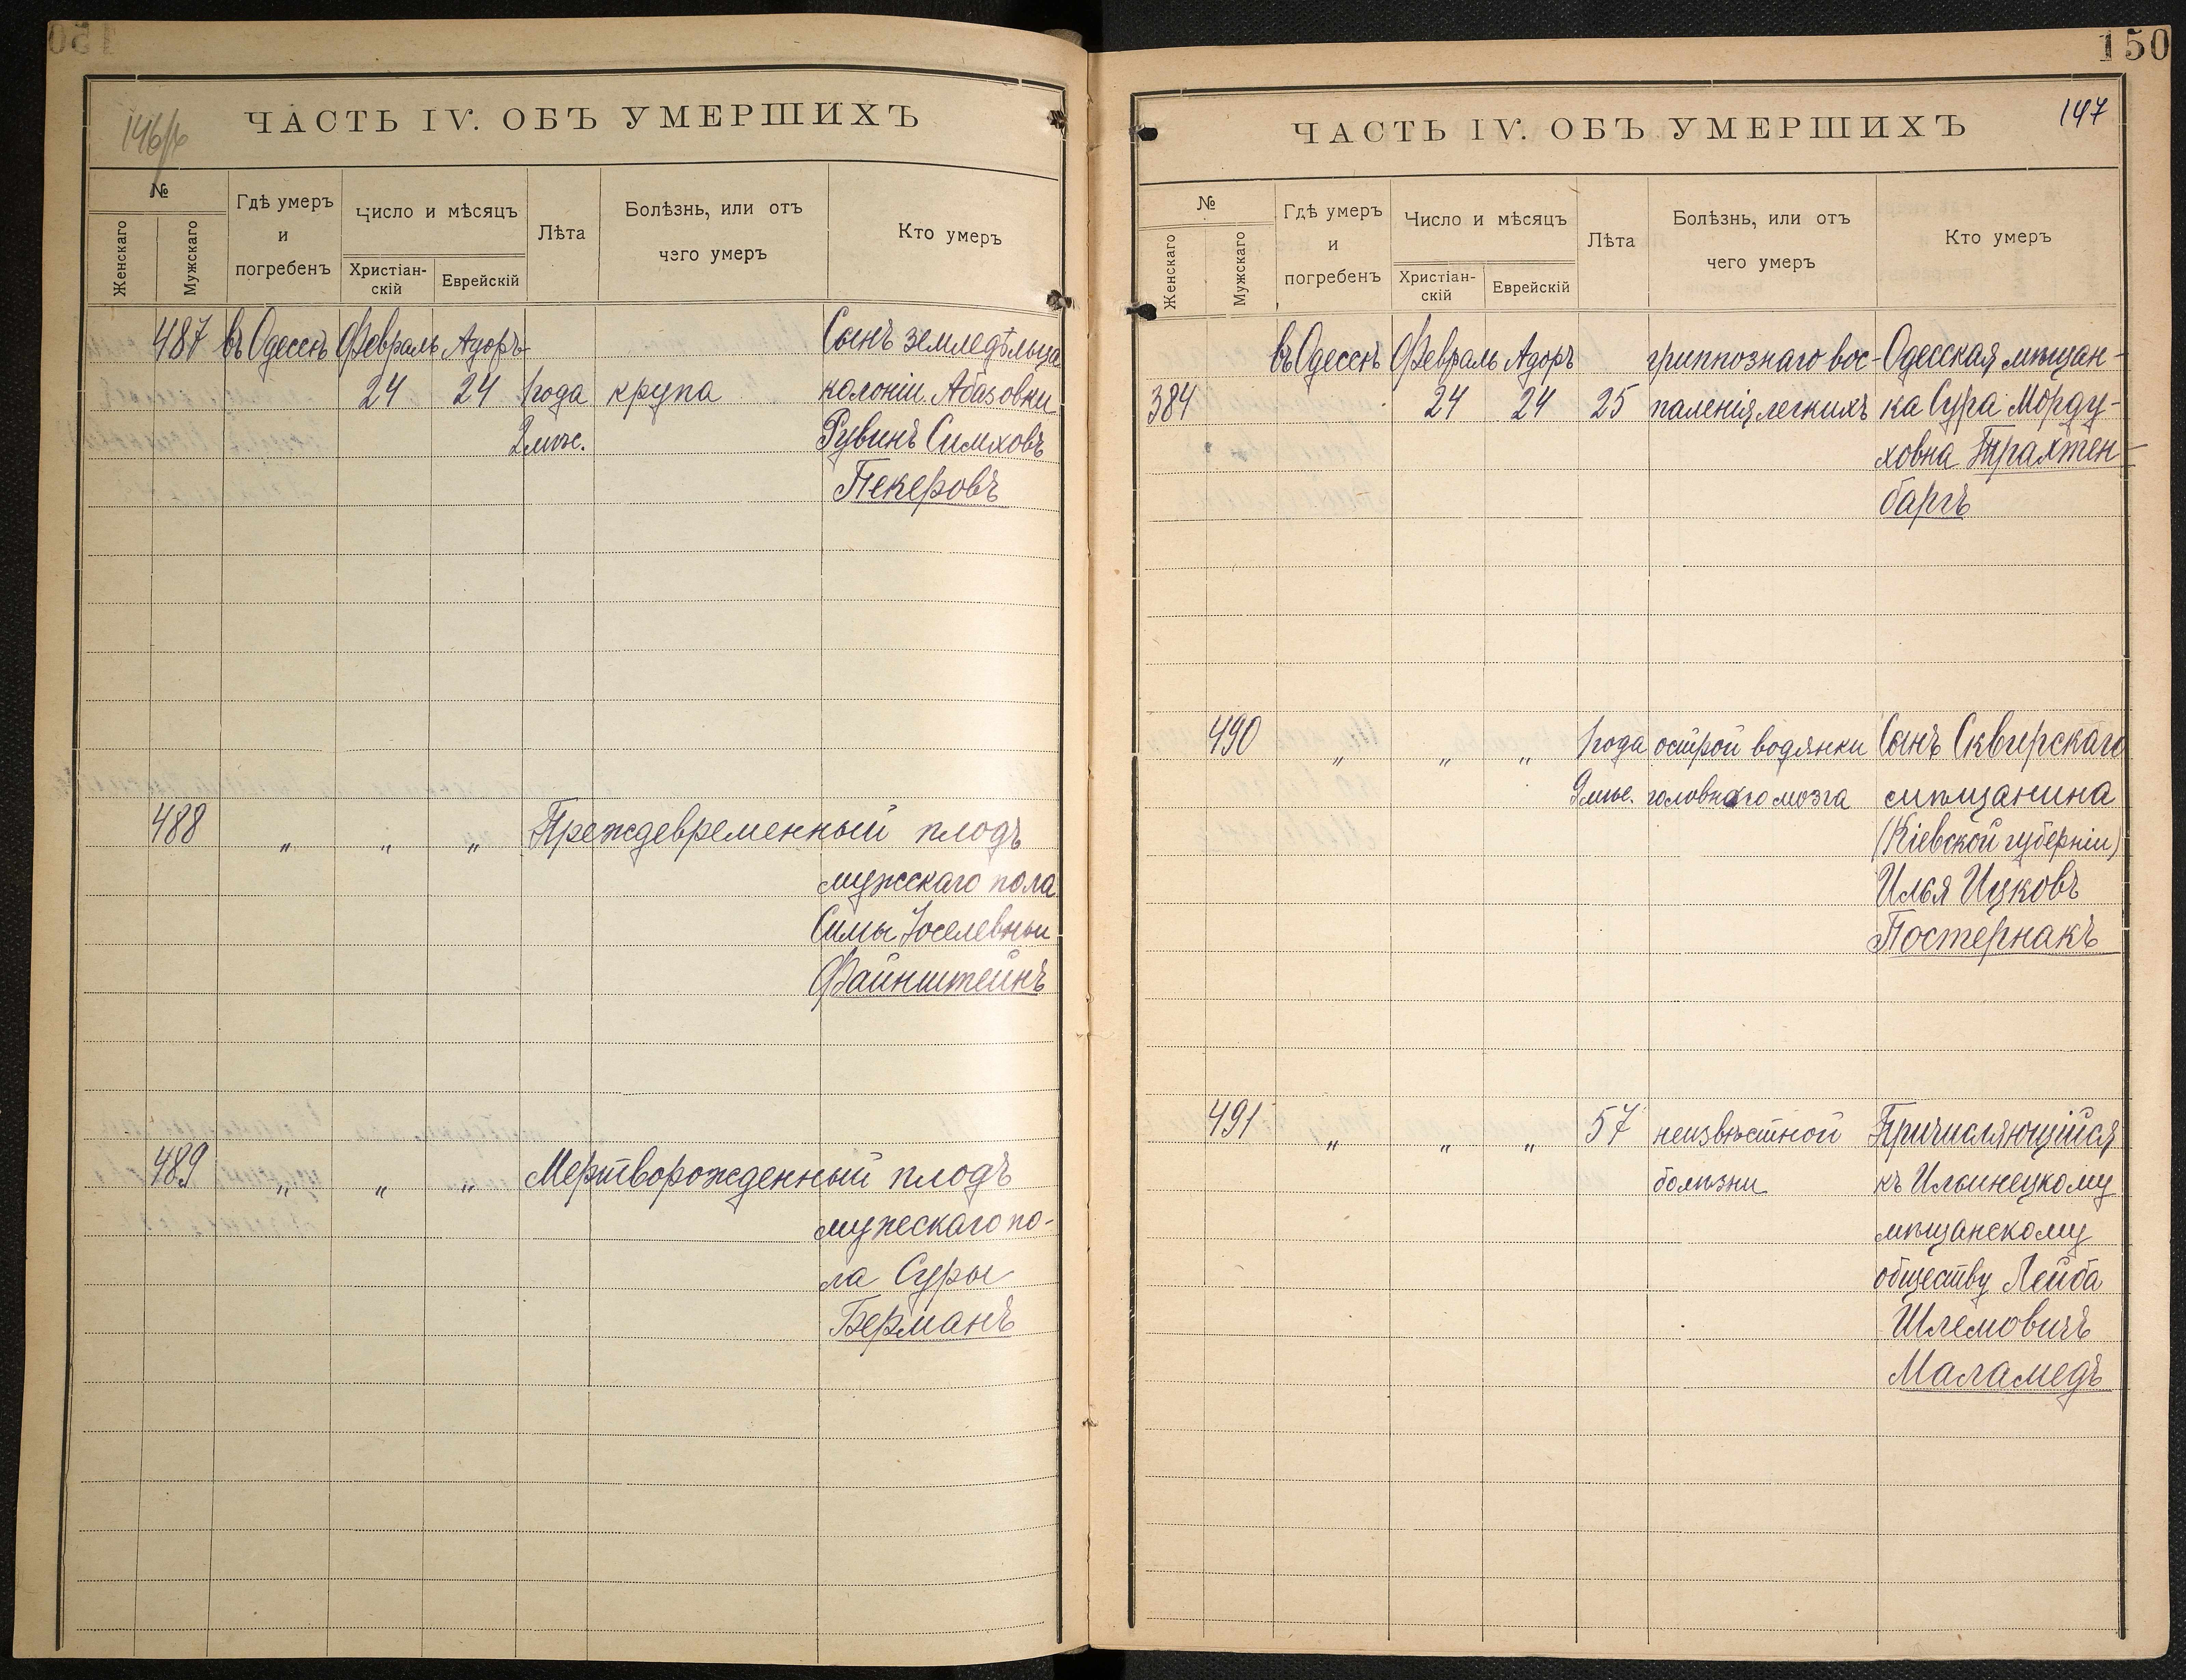 146/б
ЧАСТЬ IV. ОБЪ УМЕРШИХЪ
№
Женскаго
Мужскаго
Гдѣ умеръ
и
погребенъ
Число и мѣсяцъ
Христіан-
скій
Еврейскій
Лѣта
Болѣзнь, или отъ
чего умеръ
Кто умеръ
487 въ Одессѣ Февраль Адоръ Сынъ земледѣльца
24 24 1 года крупа колоніи Абазовки
2 мѣс. Рувинъ Симховъ
Пекеровъ
488 " " " Преждевременный плодъ
мужскаго пола
Симы Іоселевны
Файнштейнъ
489 " " " Мертворожденный плодъ
мужескаго по-
ла Суры
Берманъ
150
147
ЧАСТЬ IV. ОБЪ УМЕРШИХЪ
№
Женскаго
Мужскаго
Гдѣ умеръ
и
погребенъ
Число и мѣсяцъ
Христіан-
скій
Еврейскій
Лѣта
Болѣзнь, или отъ
чего умеръ
Кто умеръ
въ Одессѣ Февраль Адоръ гриппознаго вос- Одесская мѣщан-
384 24 24 25 паленія легкихъ ка Сура Морду-
ховна Трахтен-
баргъ
490 " " " 1 года острой водянки Сынъ Сквирскаго
9 мѣс. головнаго мозга мѣщанина
(Кіевской губерніи)
Илья Ицковъ
Постернакъ
491 " " " 57 неизвѣстной Причисляющійся
болѣзни къ Ильинецкому
мѣщанскому
обществу Лейба
Шлемовичъ
Маламедъ